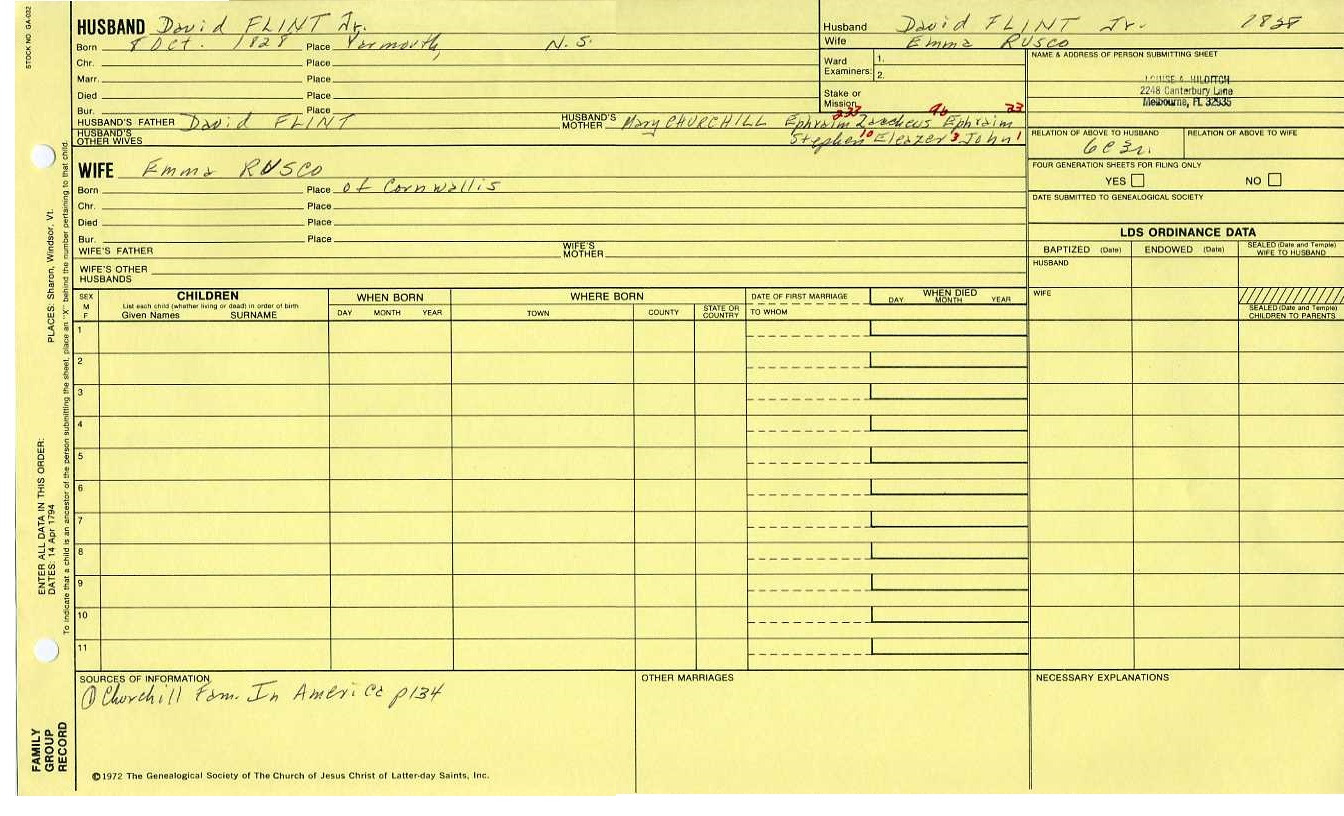 STOCK NO. GA-032
HUSBAND David FLINT Jr.
Born 8 Oct. 1828 Place Yarmouth, N.S.
Chr. Place
Marr. Place
Died Place
Bur. Place
HUSBAND'S FATHER David FLINT HUSBAND'S MOTHER Mary CHURCHILL Ephraim 233 Zaccheus 96 Ephraim 33
HUSBAND'S OTHER WIVES Stephen 10 Eleazer 3 John 1
Husband David FLINT Jr. 1828
Wife Emma RUSCO
Ward Examiners: 1.
2.
Stake or Mission
NAME & ADDRESS OF PERSON SUBMITTING SHEET
LOUISE A. HILDITCH
2248 Canterbury Lane
Melbourne, FL 32935
RELATION OF ABOVE TO HUSBAND RELATION OF ABOVE TO WIFE
6c3r.
FOUR GENERATION SHEETS FOR FILING ONLY
YES NO
DATE SUBMITTED TO GENEALOGICAL SOCIETY
WIFE Emma RUSCO
Born Place of Cornwallis
Chr. Place
Died Place
Bur. Place
WIFE'S FATHER WIFE'S MOTHER
WIFE'S OTHER HUSBANDS
LDS ORDINANCE DATA
BAPTIZED (Date) ENDOWED (Date) SEALED (Date and Temple) WIFE TO HUSBAND
HUSBAND
WIFE
SEALED (Date and Temple) CHILDREN TO PARENTS
SEX M F CHILDREN WHEN BORN WHERE BORN DATE OF FIRST MARRIAGE WHEN DIED
List each child (whether living or dead) in order of birth
Given Names SURNAME DAY MONTH YEAR TOWN COUNTY STATE OR COUNTRY TO WHOM DAY MONTH YEAR
1
2
3
4
5
6
7
8
9
10
11
SOURCES OF INFORMATION OTHER MARRIAGES NECESSARY EXPLANATIONS
① Churchill Fam. In America p134
©1972 The Genealogical Society of The Church of Jesus Christ of Latter-day Saints, Inc.
PLACES: Sharon, Windsor, Vt.
ENTER ALL DATA IN THIS ORDER:
DATES: 14 Apr 1794
To indicate that a child is an ancestor of the person submitting the sheet, place an "X" behind the number pertaining to that child.
FAMILY
GROUP
RECORD